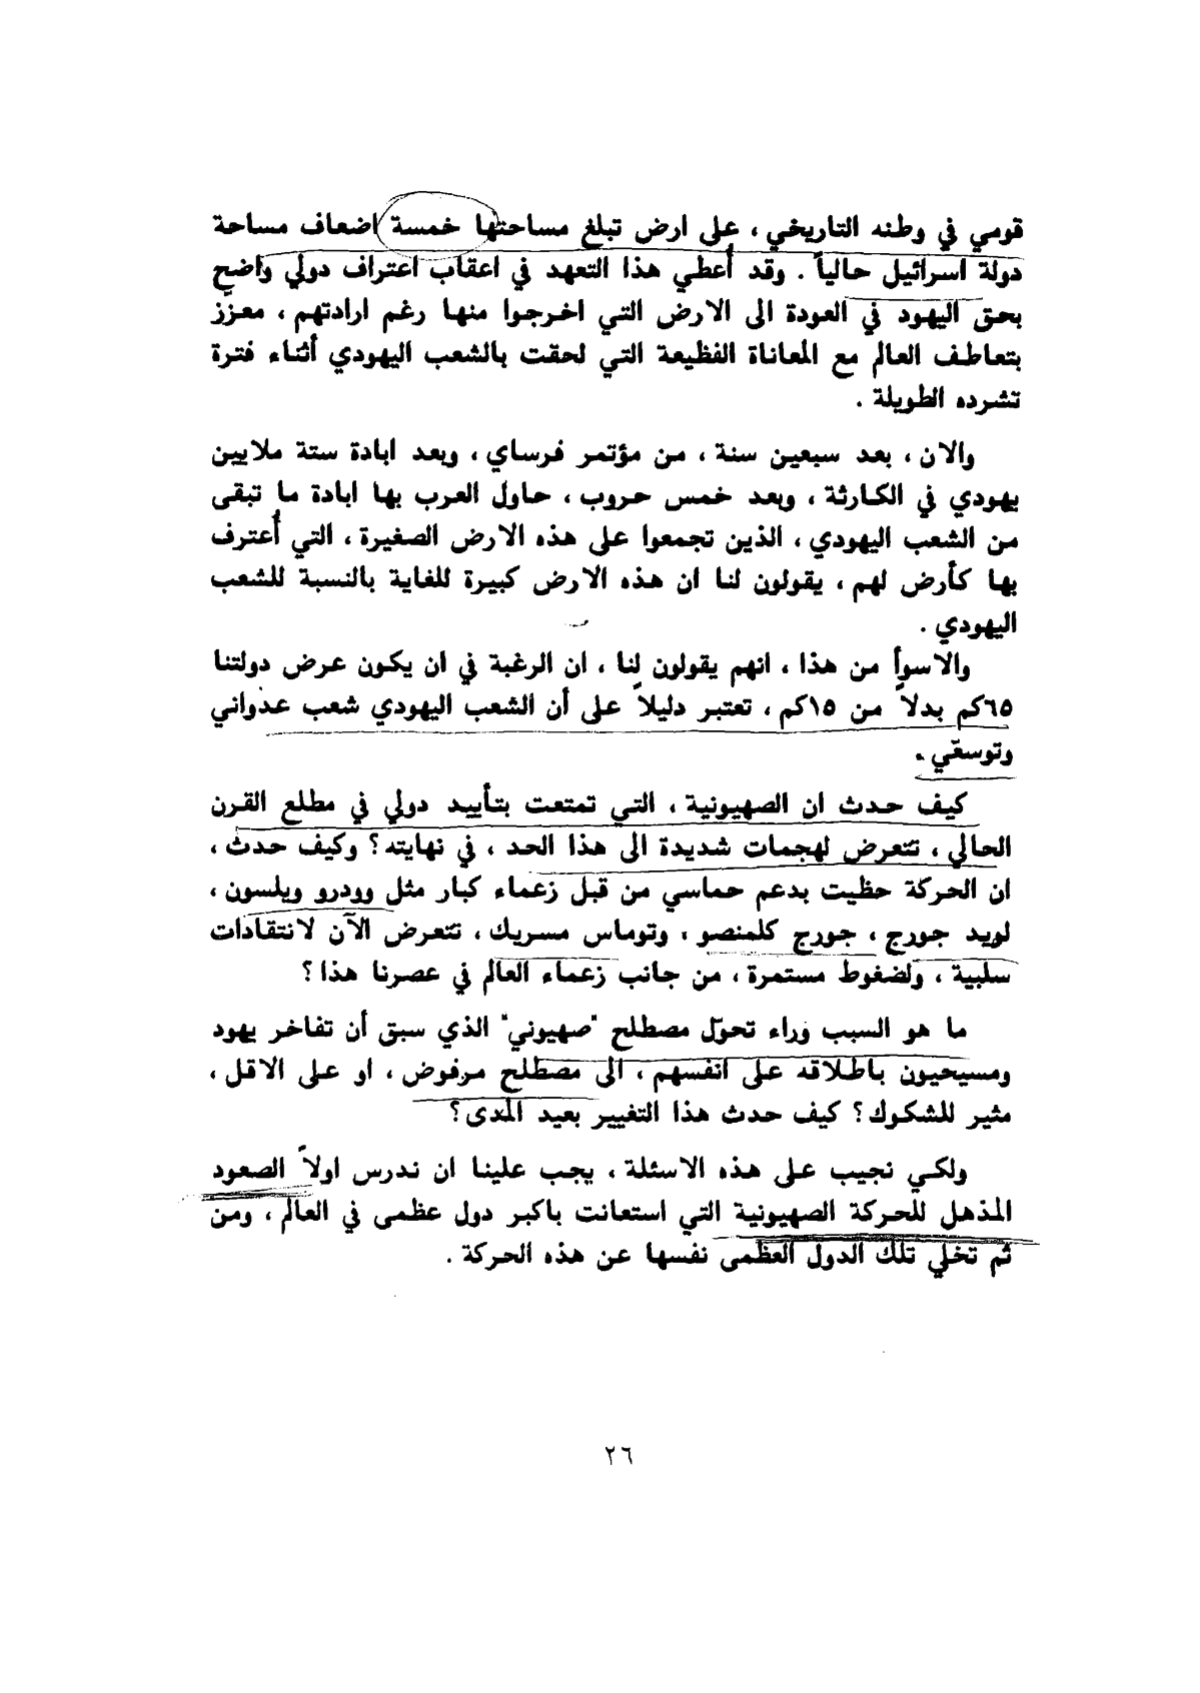 قومي في وطنه التاريخي ، على ارض تبلغ مساحتها خمسة اضعاف مساحة
دولة اسرائيل حالياً . وقد أعطي هذا التعهد في اعقاب اعتراف دولي واضح
بحق اليهود في العودة الى الارض التي اخرجوا منها رغم ارادتهم ، معزز
بتعاطف العالم مع المعاناة الفظيعة التي لحقت بالشعب اليهودي أثناء فترة
تشرده الطويلة .
والان ، بعد سبعين سنة ، من مؤتمر فرساي ، وبعد ابادة ستة ملايين
يهودي في الكارثة ، وبعد خمس حروب ، حاول العرب بها ابادة ما تبقى
من الشعب اليهودي ، الذين تجمعوا على هذه الارض الصغيرة ، التي أعترف
بها كأرض لهم ، يقولون لنا ان هذه الارض كبيرة للغاية بالنسبة للشعب
اليهودي .
والاسوأ من هذا ، انهم يقولون لنا ، ان الرغبة في ان يكون عرض دولتنا
٦٥كم بدلاً من ١٥كم ، تعتبر دليلاً على أن الشعب اليهودي شعب عدواني
وتوسعّي .
كيف حدث ان الصهيونية ، التي تمتعت بتأييد دولي في مطلع القرن
الحالي ، تتعرض لهجمات شديدة الى هذا الحد ، في نهايته؟ وكيف حدث ،
ان الحركة حظيت بدعم حماسي من قبل زعماء كبار مثل وودرو ويلسون ،
لويد جورج ، جورج كلمنصو ، وتوماس مسريك ، تتعرض الآن لانتقادات
سلبية ، ولضغوط مستمرة ، من جانب زعماء العالم في عصرنا هذا؟
ما هو السبب وراء تحوّل مصطلح "صهيوني" الذي سبق أن تفاخر يهود
ومسيحيون باطلاقه على انفسهم ، الى مصطلح مرفوض ، او على الاقل ،
مثير للشكوك؟ كيف حدث هذا التغيير بعيد المدى؟
ولكي نجيب على هذه الاسئلة ، يجب علينا ان ندرس اولاً الصعود
المذهل للحركة الصهيونية التي استعانت باكبر دول عظمى في العالم ، ومن
ثم تخلي تلك الدول العظمى نفسها عن هذه الحركة .
٢٦